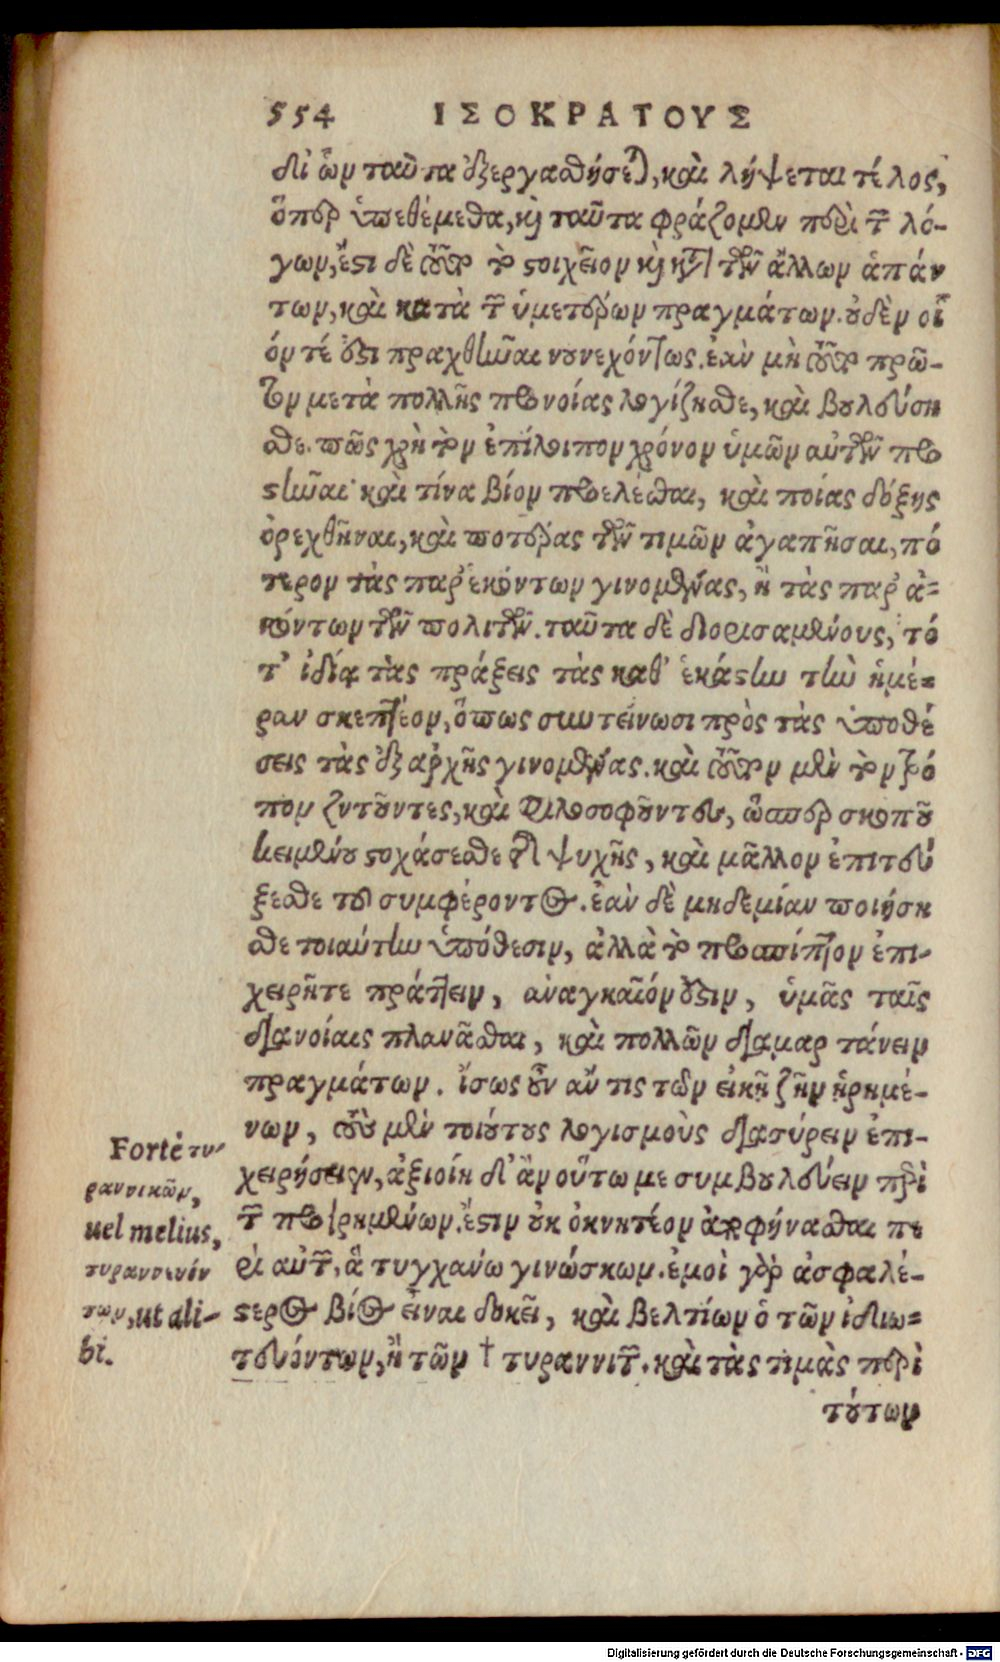 554 ΙΣΟΚΡΑΤΟΥΣ
δι' ὧν ταῦτα ἐξεργασθήσεται, καὶ λήψεται τέλος,
ὅπερ ὑπεθέμεθα, καὶ ταῦτα φράζομεν περὶ τῶν λό-
γων, ἔστι δὲ τοῦτο τὸ στοιχεῖον καὶ κατὰ τῶν ἄλλων ἁπάν
των, καὶ κατὰ τῶν ὑμετέρων πραγμάτων. οὐδὲν οἷ
όν τέ ἐστι πραχθῆναι νουνεχόντως. ἐὰν μὴ τοῦτο πρῶ-
τον μετὰ πολλῆς προνοίας λογίζησθε, καὶ βουλεύση
σθε. πῶς χρὴ τὸν ἐπίλοιπον χρόνον ὑμῶν αὐτῶν προ
στῆναι· καὶ τίνα βίον προελέσθαι, καὶ ποίας δόξης
ὀρεχθῆναι, καὶ ποτέρας τῶν τιμῶν ἀγαπῆσαι, πό
τερον τὰς παρ' ἑκόντων γινομένας, ἢ τὰς παρ' ἀ-
κόντων τῶν πολιτῶν. ταῦτα δὲ διορισαμένους, τό
τ' ἰδίᾳ τὰς πράξεις τὰς καθ' ἑκάστην τὴν ἡμέ-
ραν σκεπτέον, ὅπως συντείνωσι πρὸς τὰς ὑποθέ
σεις τὰς ἐξ ἀρχῆς γινομένας. καὶ τοῦτον μὲν τὸν τρό
πον ζητοῦντες, καὶ φιλοσοφοῦντες, ὥσπερ σκοποῦ
κειμένου στοχάσεσθε τῆς ψυχῆς, καὶ μᾶλλον ἐπιτεύ
ξεσθε τοῦ συμφέροντος. ἐὰν δὲ μηδεμίαν ποιήση
σθε τοιαύτην ὑπόθεσιν, ἀλλὰ τὸ προσπίπτον ἐπι-
χειρῆτε πράττειν, ἀναγκαῖόν ἐστιν, ὑμᾶς ταῖς
διανοίαις πλανᾶσθαι, καὶ πολλῶν διαμαρτάνειν
πραγμάτων. ἴσως οὖν ἄν τις τῶν εἰκῇ ζῆν ᾑρημέ-
νων, τοὺς μὲν τοιούτους λογισμοὺς διασύρειν ἐπι-
χειρήσειεν, ἀξιοίη δ' ἂν οὕτω με συμβουλεύειν περὶ
τῶν προειρημένων. ἔστιν οὐκ ὀκνητέον ἀποφήνασθαι πε
ρὶ αὐτῶν, ἃ τυγχάνω γινώσκων. ἐμοὶ γὰρ ἀσφαλέ-
στερος βίος εἶναι δοκεῖ, καὶ βελτίων ὁ τῶν ἰδιω-
τευόντων, ἢ τῶν † τυραννιτῶν. καὶ τὰς τιμὰς περὶ
τούτων
Forte τυ-
ραννικῶν,
uel melius,
τυραννευόν
των, ut ali-
bi.
Digitalisierung gefördert durch die Deutsche Forschungsgemeinschaft - DFG